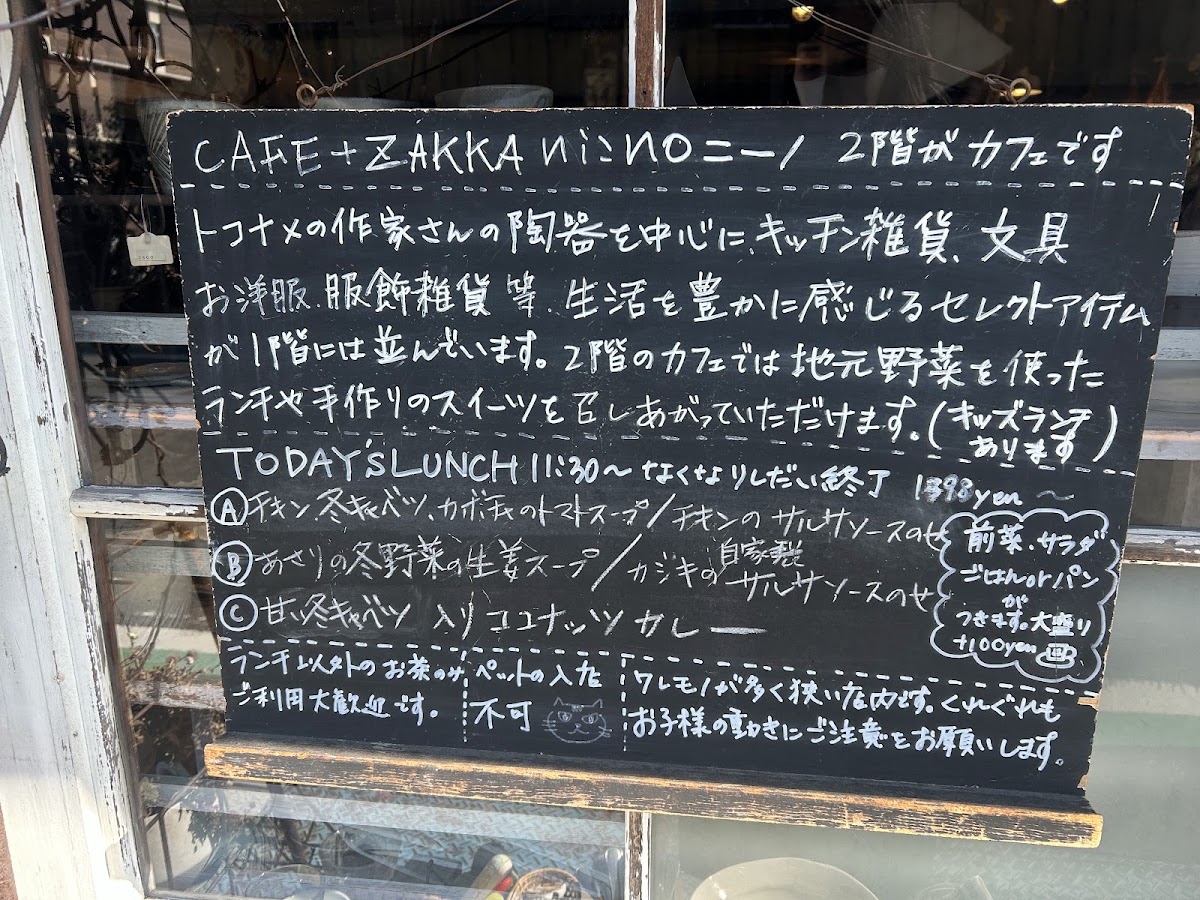 CAFE + ZAKKA ni:no ニーノ 2階がカフェです
トコナメの作家さんの陶器を中心に、キッチン雑貨、文具
お洋服、服飾雑貨等、生活を豊かに感じるセレクトアイテム
が1階には並んでいます。2階のカフェでは地元野菜を使った
ランチや手作りのスイーツを召しあがっていただけます。(キッズランチあります)
TODAY'S LUNCH 11:30〜なくなりしだい終了 1398yen〜
Ⓐチキン、冬キャベツ、カボチャのトマトスープ/チキンのサルサソースのせ
Ⓑあさりの冬野菜の生姜スープ/カジキの自家製サルサソースのせ
Ⓒ甘い冬キャベツ入りココナッツカレー
前菜、サラダ
ごはんorパン
が
つきます。大盛り
+100yen
ランチ以外のお茶のみ
ご利用大歓迎です。
ペットの入店
不可
ワレモノが多く狭い店内です。くれぐれも
お子様の動きにご注意をお願いします。